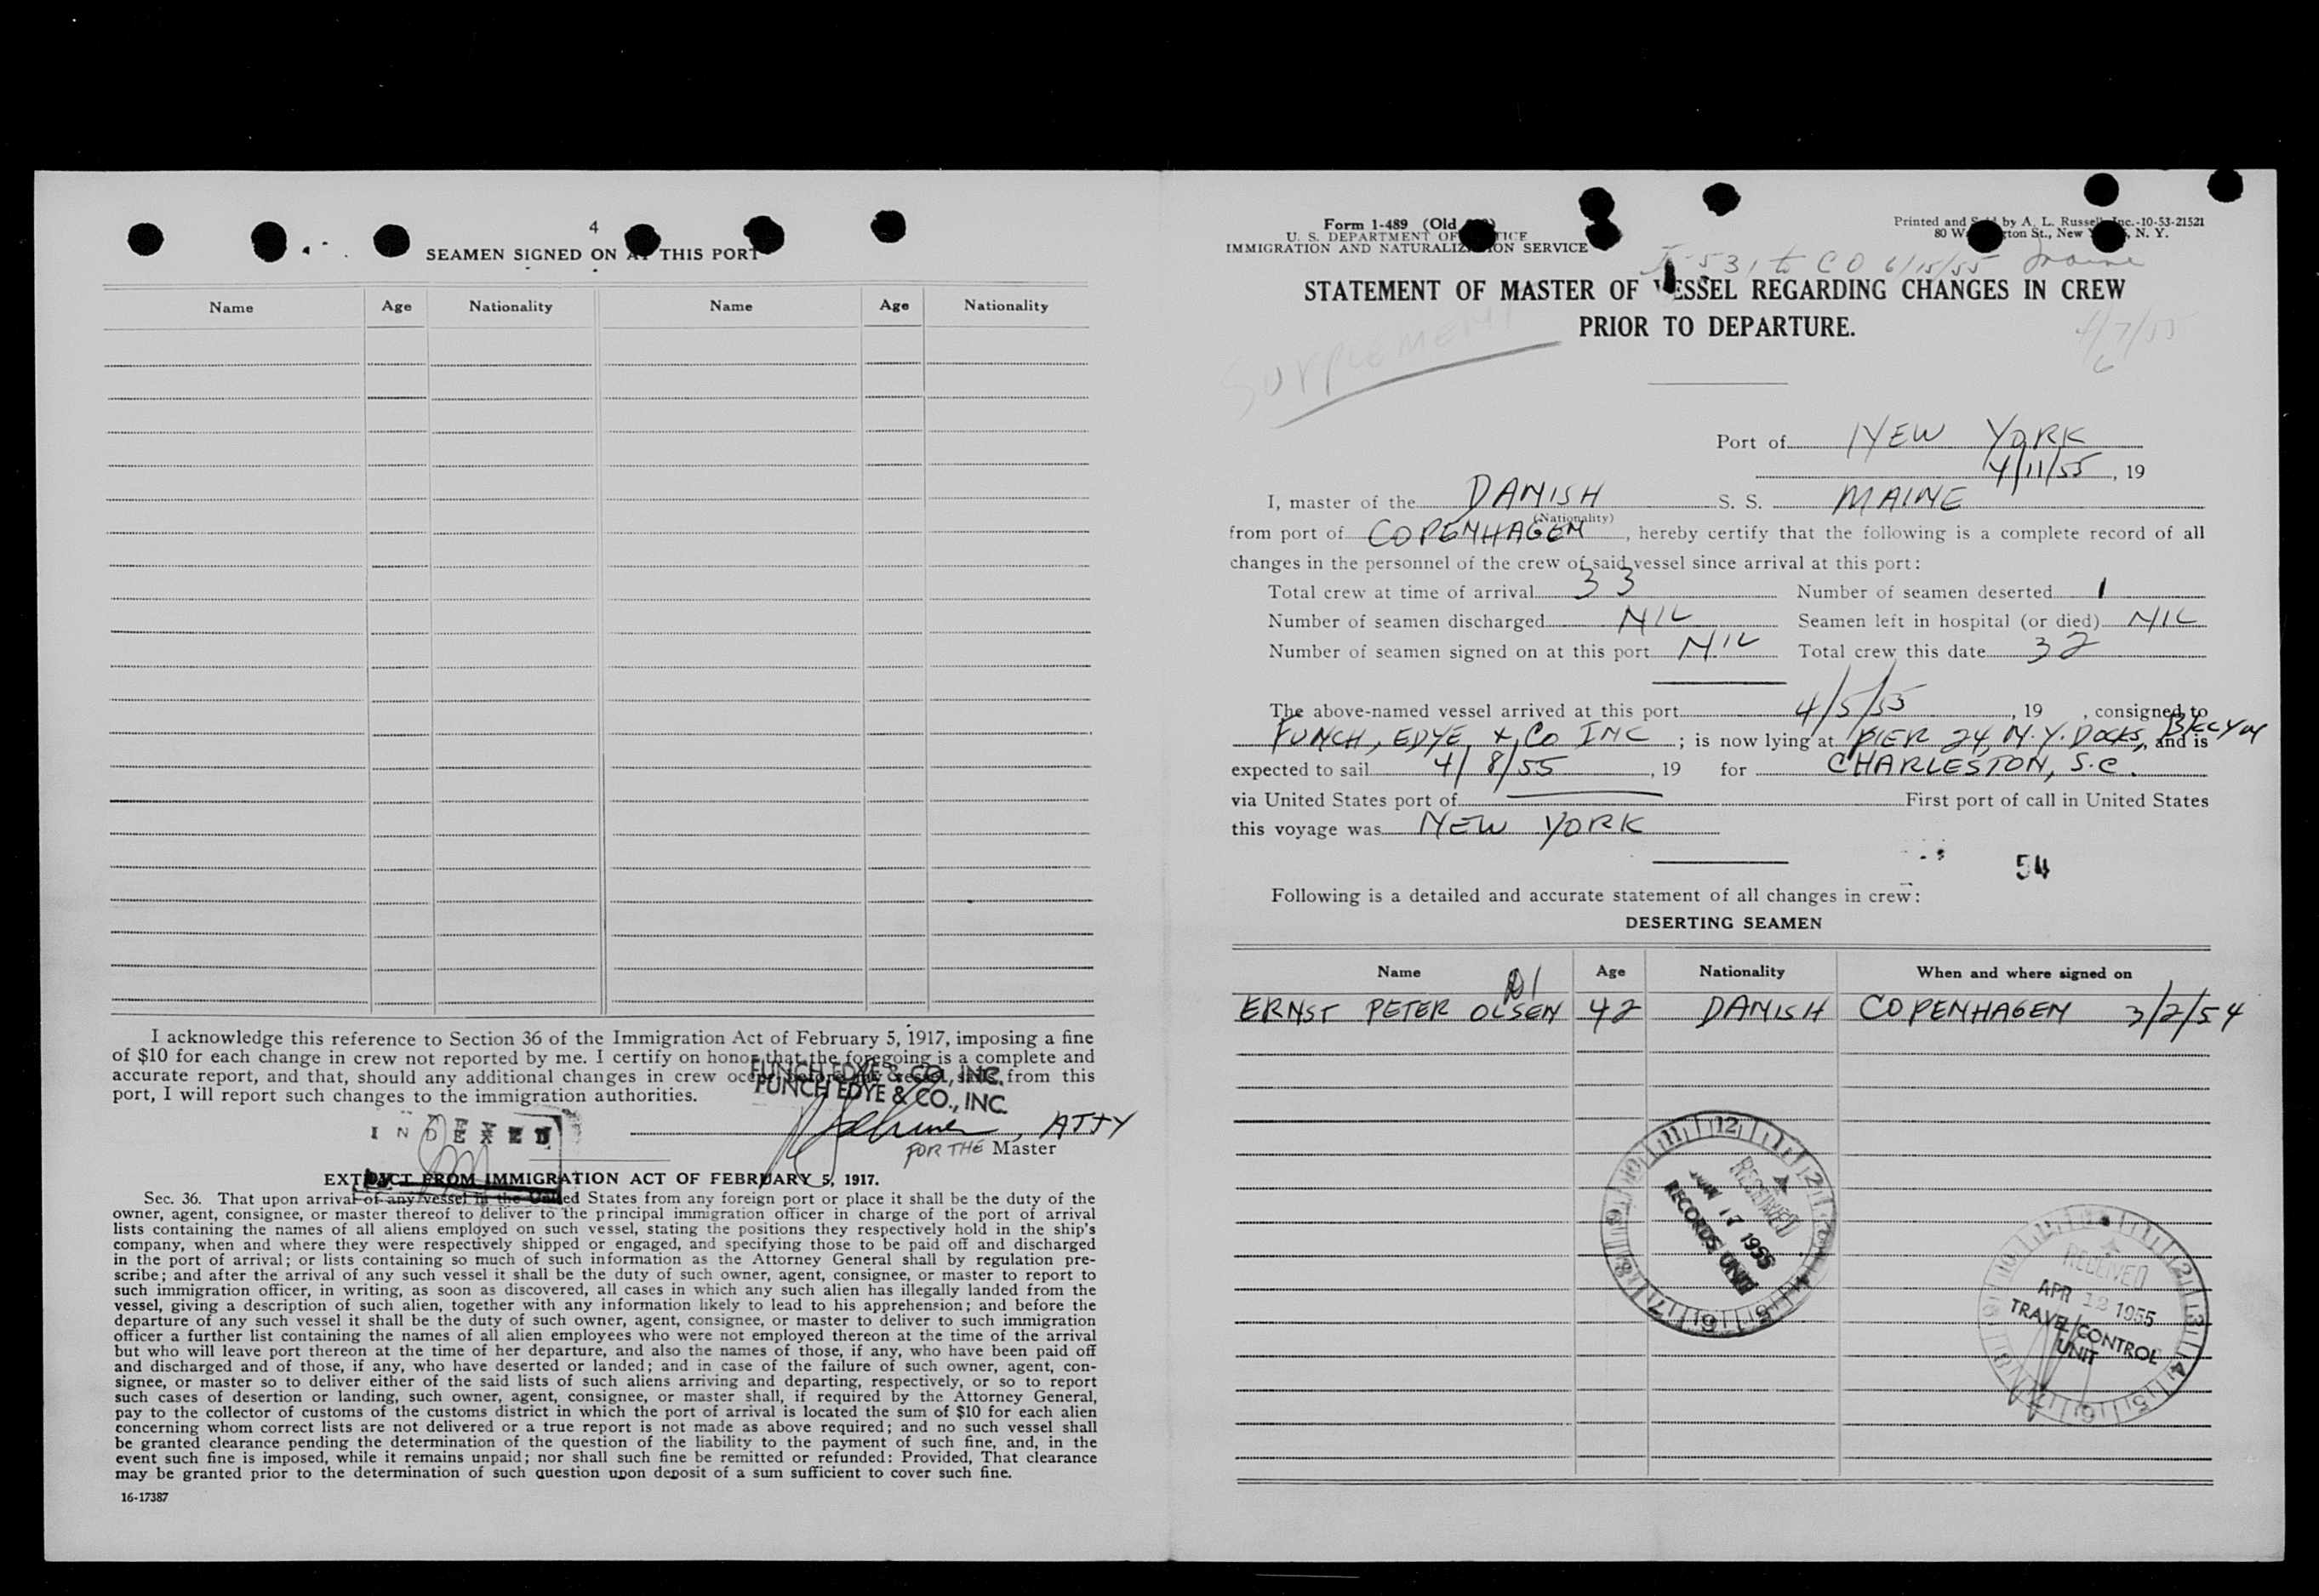 4
SEAMEN SIGNED ON AT THIS PORT
Name Age Nationality Name Age Nationality
I acknowledge this reference to Section 36 of the Immigration Act of February 5, 1917, imposing a fine
of $10 for each change in crew not reported by me. I certify on honor that the foregoing is a complete and
accurate report, and that, should any additional changes in crew occur before my vessel, sails from this
port, I will report such changes to the immigration authorities.
FUNCH EDYE & CO., INC.
FUNCH EDYE & CO., INC.
INDEXED
, ATTY
FOR THE Master
EXTRACT FROM IMMIGRATION ACT OF FEBRUARY 5, 1917.
Sec. 36. That upon arrival of any vessel in the United States from any foreign port or place it shall be the duty of the
owner, agent, consignee, or master thereof to deliver to the principal immigration officer in charge of the port of arrival
lists containing the names of all aliens employed on such vessel, stating the positions they respectively hold in the ship's
company, when and where they were respectively shipped or engaged, and specifying those to be paid off and discharged
in the port of arrival; or lists containing so much of such information as the Attorney General shall by regulation pre-
scribe; and after the arrival of any such vessel it shall be the duty of such owner, agent, consignee, or master to report to
such immigration officer, in writing, as soon as discovered, all cases in which any such alien has illegally landed from the
vessel, giving a description of such alien, together with any information likely to lead to his apprehension; and before the
departure of any such vessel it shall be the duty of such owner, agent, consignee, or master to deliver to such immigration
officer a further list containing the names of all alien employees who were not employed thereon at the time of the arrival
but who will leave port thereon at the time of her departure, and also the names of those, if any, who have been paid off
and discharged and of those, if any, who have deserted or landed; and in case of the failure of such owner, agent, con-
signee, or master so to deliver either of the said lists of such aliens arriving and departing, respectively, or so to report
such cases of desertion or landing, such owner, agent, consignee, or master shall, if required by the Attorney General,
pay to the collector of customs of the customs district in which the port of arrival is located the sum of $10 for each alien
concerning whom correct lists are not delivered or a true report is not made as above required; and no such vessel shall
be granted clearance pending the determination of the question of the liability to the payment of such fine, and, in the
event such fine is imposed, while it remains unpaid; nor shall such fine be remitted or refunded: Provided, That clearance
may be granted prior to the determination of such question upon deposit of a sum sufficient to cover such fine.
16-17387
Form 1-489 (Old
U. S. DEPARTMENT OF
IMMIGRATION AND NATURALIZATION SERVICE
Printed and Sold by A. L. Russell, Inc.-10-53-21521
80 Washington St., New York, N. Y.
531 to CO 6/15/55 Maine
STATEMENT OF MASTER OF VESSEL REGARDING CHANGES IN CREW
PRIOR TO DEPARTURE.
SUPPLEMENT
Port of NEW YORK
4/11/55, 19
I, master of the DANISH S. S. MAINE
(Nationality)
from port of COPENHAGEN, hereby certify that the following is a complete record of all
changes in the personnel of the crew of said vessel since arrival at this port:
Total crew at time of arrival 33 Number of seamen deserted 1
Number of seamen discharged NIL Seamen left in hospital (or died) NIL
Number of seamen signed on at this port NIL Total crew this date 32
The above-named vessel arrived at this port 4/5/55, 19 , consigned to
FUNCH, EDYE, & Co INC; is now lying at PIER 24, N.Y. DOCKS, BKLYN and is
expected to sail 4/8/55, 19 for CHARLESTON, S.C.
via United States port of First port of call in United States
this voyage was NEW YORK
54
Following is a detailed and accurate statement of all changes in crew:
DESERTING SEAMEN
Name Age Nationality When and where signed on
ERNST PETER OLSEN 42 DANISH COPENHAGEN 3/2/54
RECEIVED
JUN 17 1955
RECORDS UNIT
RECEIVED
APR 12 1955
TRAVEL CONTROL
UNIT